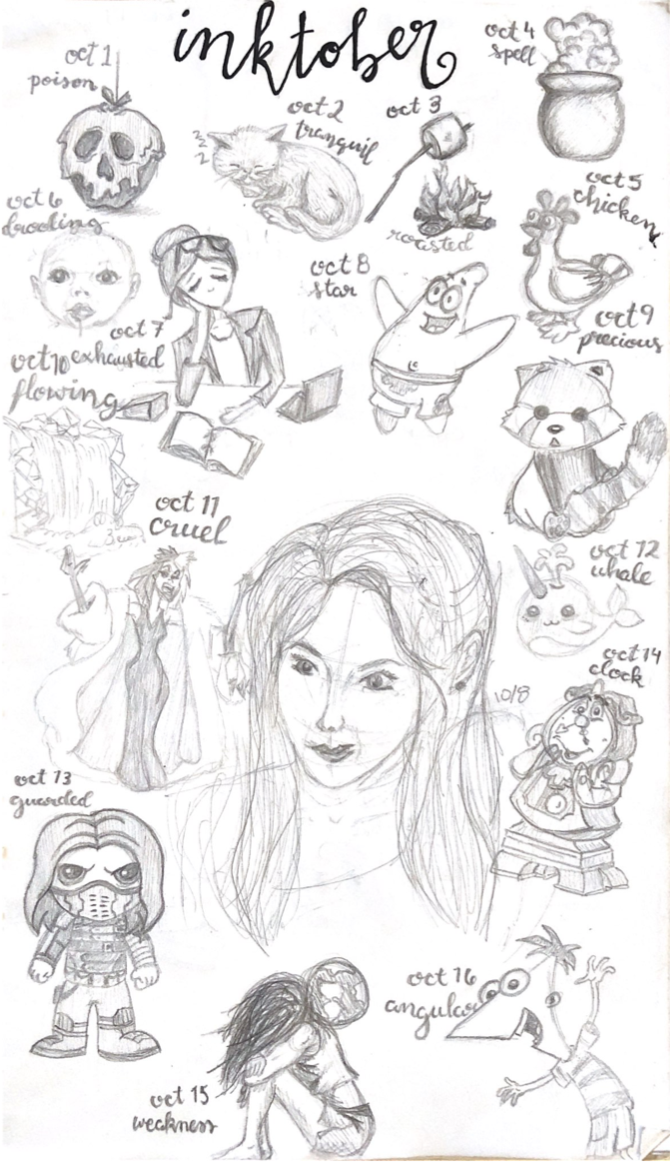 inktober
oct 1
poison
oct 2
tranquil
z
z
z
oct 3
roasted
oct 4
spell
oct 5
chicken
oct 6
drooling
oct 7
exhausted
oct 8
star
oct 9
precious
oct 10
flowing
oct 11
cruel
oct 12
whale
oct 13
guarded
oct 14
clock
10/8
oct 15
weakness
oct 16
angular